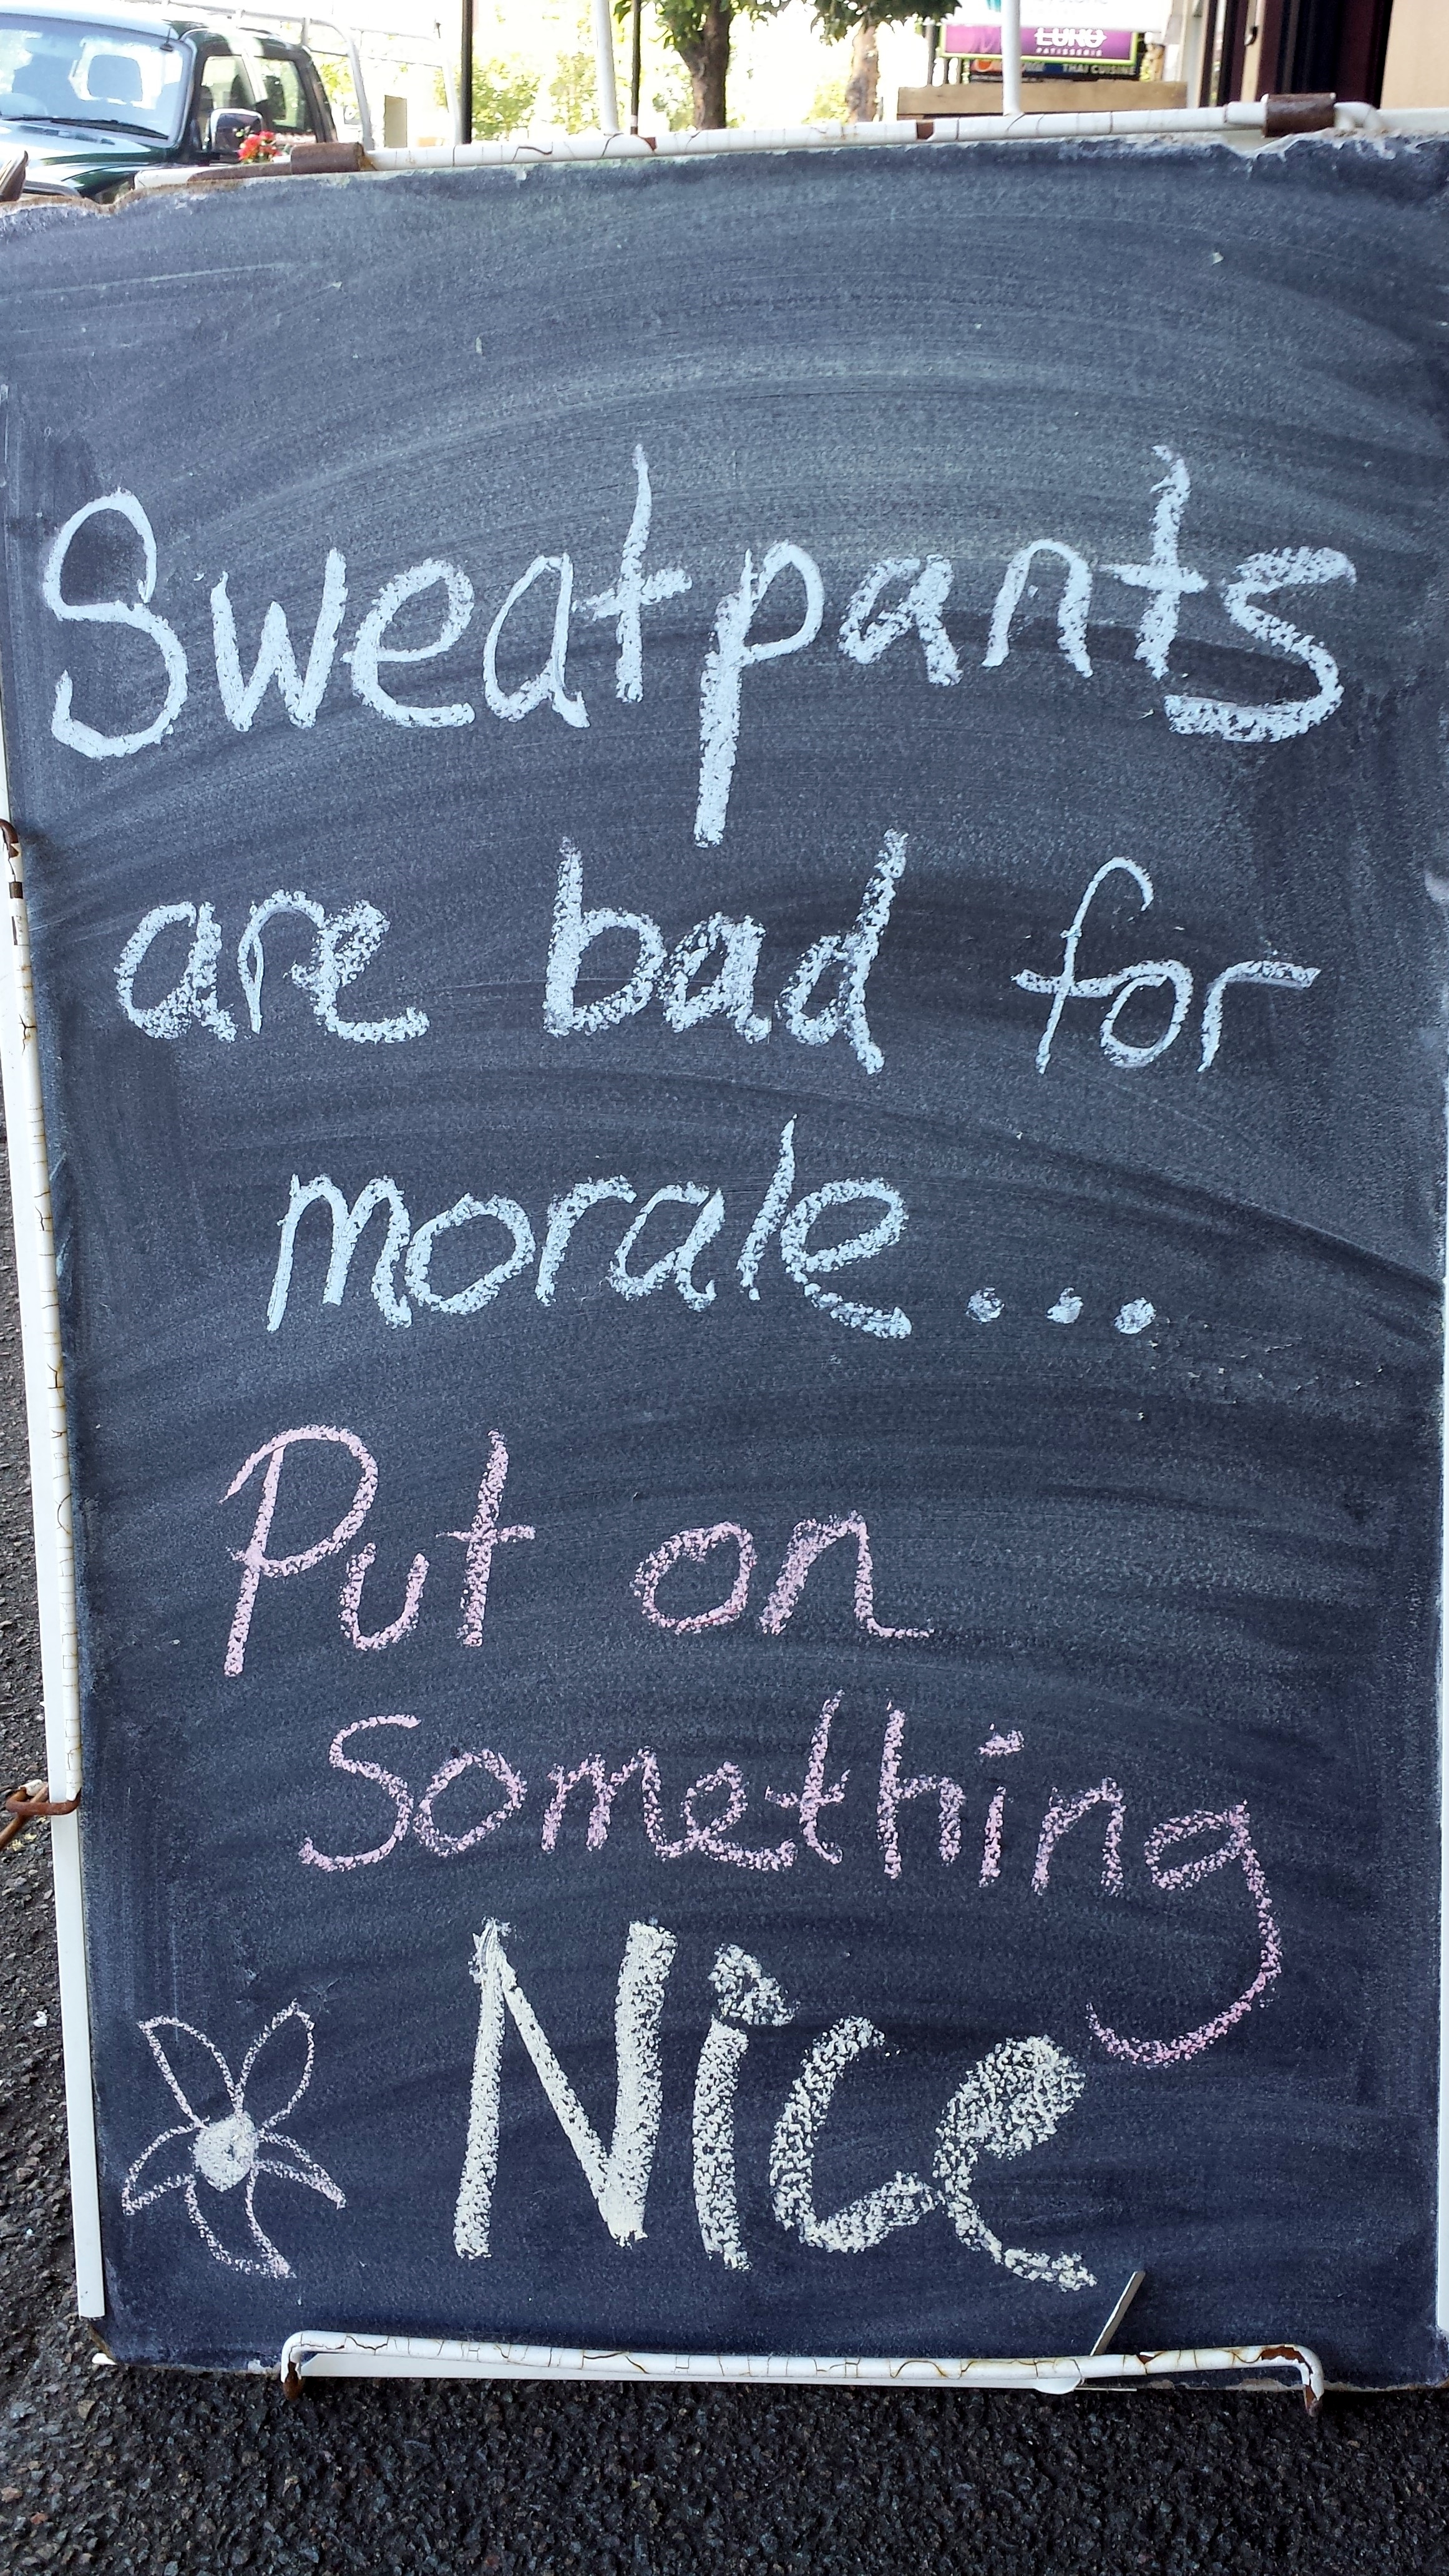 LUNO
PATISSERIE
THAI CUISINE
Sweatpants
are bad for
morale...
Put on
Something
Nice